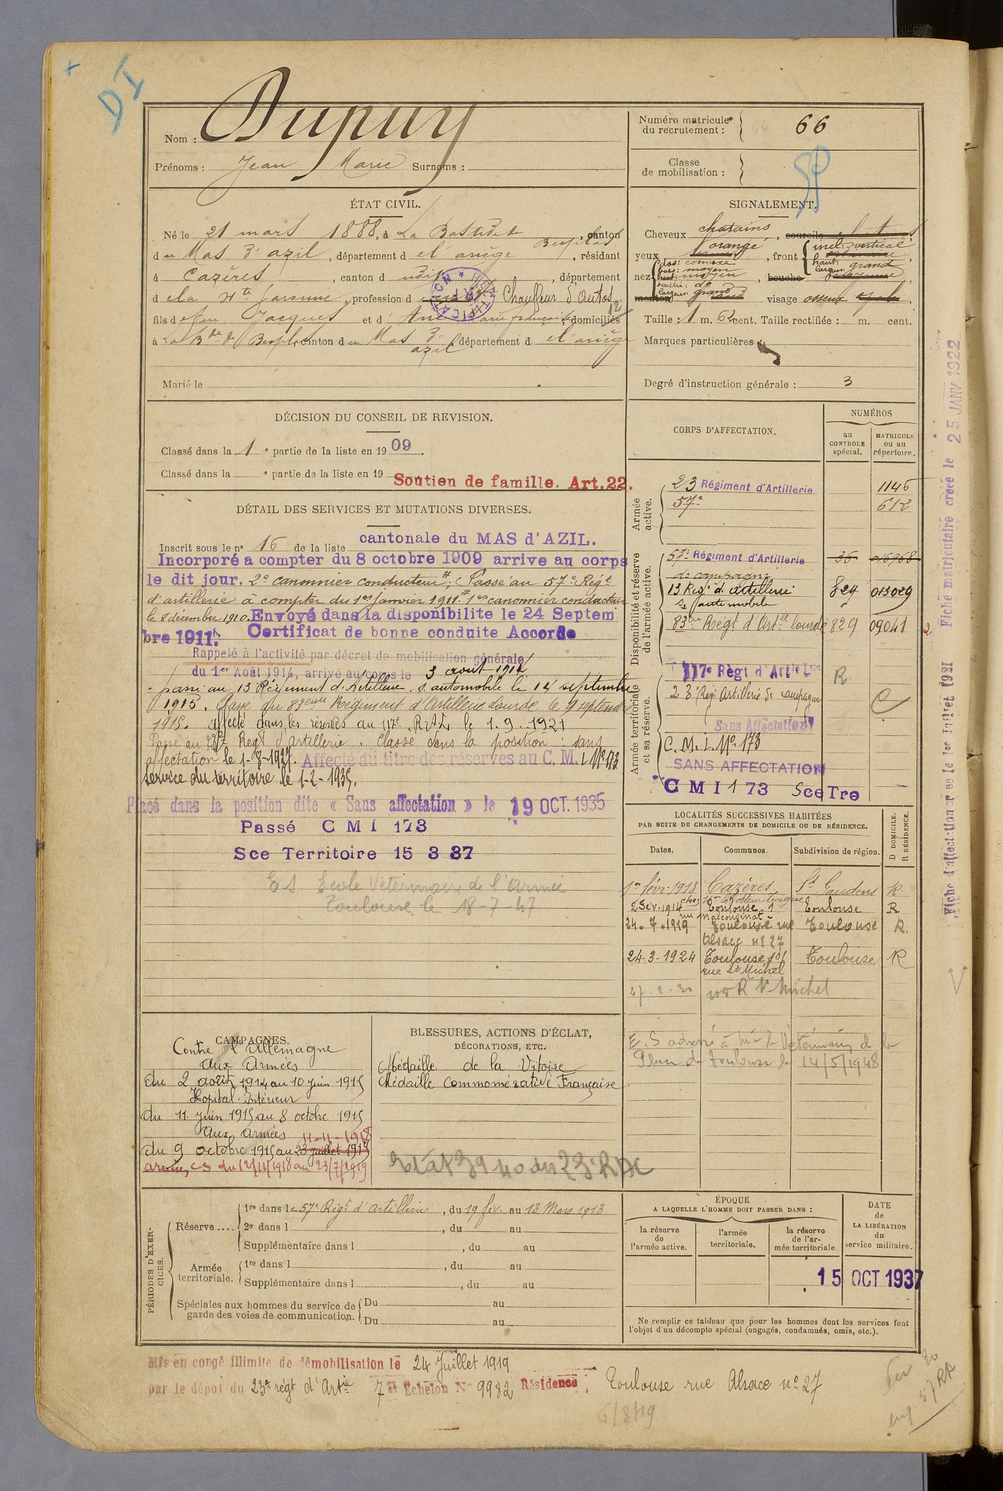 DI
Nom : Dupuy
Prénoms : Jean Marie Surnoms :
Numéro matricule du recrutement : 66
Classe de mobilisation :
ÉTAT CIVIL.
Né le 21 mars 1888, à La Bastide Besplas, canton
du Mas d'azil, département d el'ariège, résidant
à Cazères, canton d dudit, département
d ela Hte Garonne, profession d Chauffeur d'autos
fils d Jacques et d' Anne Marie françoise domiciliés
à La Bde de Besplas canton du Mas d'azil département d el'ariège
Marié le
SIGNALEMENT.
Cheveux chatains sourcils
yeux orangé, front incl: vertical haut: largr grand
nez dos: base: moyen moyen bouche
menton visage osseux
Taille : 1 m. 62 cent. Taille rectifiée : m. cent.
Marques particulières :
Degré d'instruction générale : 3
DÉCISION DU CONSEIL DE REVISION.
Classé dans la 1e partie de la liste en 1909.
Classé dans la e partie de la liste en 19
Soutien de famille. Art.22.
DÉTAIL DES SERVICES ET MUTATIONS DIVERSES.
Inscrit sous le n° 16 de la liste cantonale du MAS d'AZIL.
Incorporé a compter du 8 octobre 1909 arrive au corps
le dit jour. 2e canonnier conducteur. Passé au 57e Régt
d'artillerie à compter du 1er janvier 1911. 1er canonnier conducteur
le 8 décembre 1910. Envoyé dans la disponibilite le 24 Septem
bre 1911. Certificat de bonne conduite Accordé
Rappelé à l'activité par décret de mobilisation générale
du 1er Août 1914, arrivé au corps le 3 aout 1914
passé au 13 Régiment d'Artillerie, S. automobile le 14 septembre
1915. Passé au 83eme Régiment d'Artillerie Lourde le 9 septemb
1918. Affecté dans les réserves au 117e R.A.L. le 1.9.1921
Passé au 23e Régt d'artillerie. Classé dans la position: sans
affectation le 1-8-1927. Affecté au titre des réserves au C.M.I. No 173
service du territoire le 1-2-1935.
Placé dans la position dite « Sans affectation » le 19 OCT. 1935
Passé C M I 173
Sce Territoire 15 3 37
E.S. Ecole Vétérinaire de l'Armée
Toulouse le 18-7-47
CORPS D'AFFECTATION.
NUMÉROS
au CONTROLE spécial.
MATRICULE ou au répertoire.
Armée active.
23 Régiment d'Artillerie 1146
57e 612
Disponibilité et réserve de l'armée active.
57e Régiment d'Artillerie 36
de campagne
13 Régt d'artillerie 824 013029
Son automobile
83eme Régt d'Arte lourde 829 09041
Armée territoriale et sa réserve.
117e Régt d'Artie Lde R
23 Régt Artillerie de campagne
Sans Affectation
C.M.I. No 173
SANS AFFECTATION
C M I 173 Sce Tre
Fiche d'affectation créée le 1er Juillet 1921 Fiche matriculaire créée le 25 JANV 1922
LOCALITÉS SUCCESSIVES HABITÉES
PAR SUITE DE CHANGEMENTS DE DOMICILE OU DE RÉSIDENCE.
Dates. Communes. Subdivision de région. D DOMICILE. R RÉSIDENCE.
1er févr. 1913 Cazères St Gaudens R
Toulouse Toulouse R
24-7-1919 Toulouse rue Alsace no 27 Toulouse R.
24-3-1924 Toulouse rue St Michel Toulouse R
R St Michel
14/5/1948
CAMPAGNES.
Contre l'Allemagne
Aux Armées
du 2 août 1914 au 10 juin 1915
Hopital. Intérieur
du 11 juin 1915 au 8 octobre 1915
Aux Armées 11-11-1918
du 9 octobre 1915 au 23 juillet 1919
du 12/11/1918 au 23/7/1919
BLESSURES, ACTIONS D'ÉCLAT,
DÉCORATIONS, ETC.
Médaille de la Victoire
Médaille Commémorative Française
39 40 du 23e RAC
PÉRIODES D'EXERCICES.
Réserve .... 1re dans le 57e Régt d'Artillerie, du 19 fév. au 13 Mars 1913
2e dans l , du au
Supplémentaire dans l , du au
Armée territoriale. 1re dans l , du au
Supplémentaire dans l , du au
Spéciales aux hommes du service de garde des voies de communication. Du au
Du au
ÉPOQUE
A LAQUELLE L'HOMME DOIT PASSER DANS :
la réserve de l'armée active.
l'armée territoriale.
la réserve de l'armée territoriale.
DATE de LA LIBÉRATION du service militaire.
15 OCT 1937
Ne remplir ce tableau que pour les hommes dont les services font
l'objet d'un décompte spécial (engagés, condamnés, omis, etc.).
Mis en congé illimité de démobilisation le 24 Juillet 1919
par le dépôt du 23e régt d'Artie 7e Echelon No 9982 Résidence : Toulouse rue Alsace no 27
6/8/19